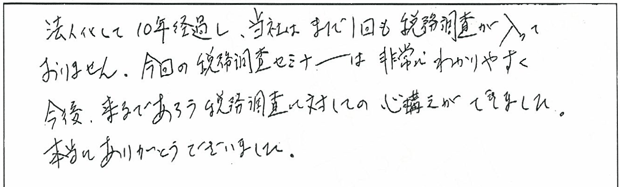 法人化して10年経過し、当社はまだ1回も税務調査が入って
おりません。今回の税務調査セミナーは非常にわかりやすく
今後、来るであろう税務調査に対しての心構えができました。
本当にありがとうございました。